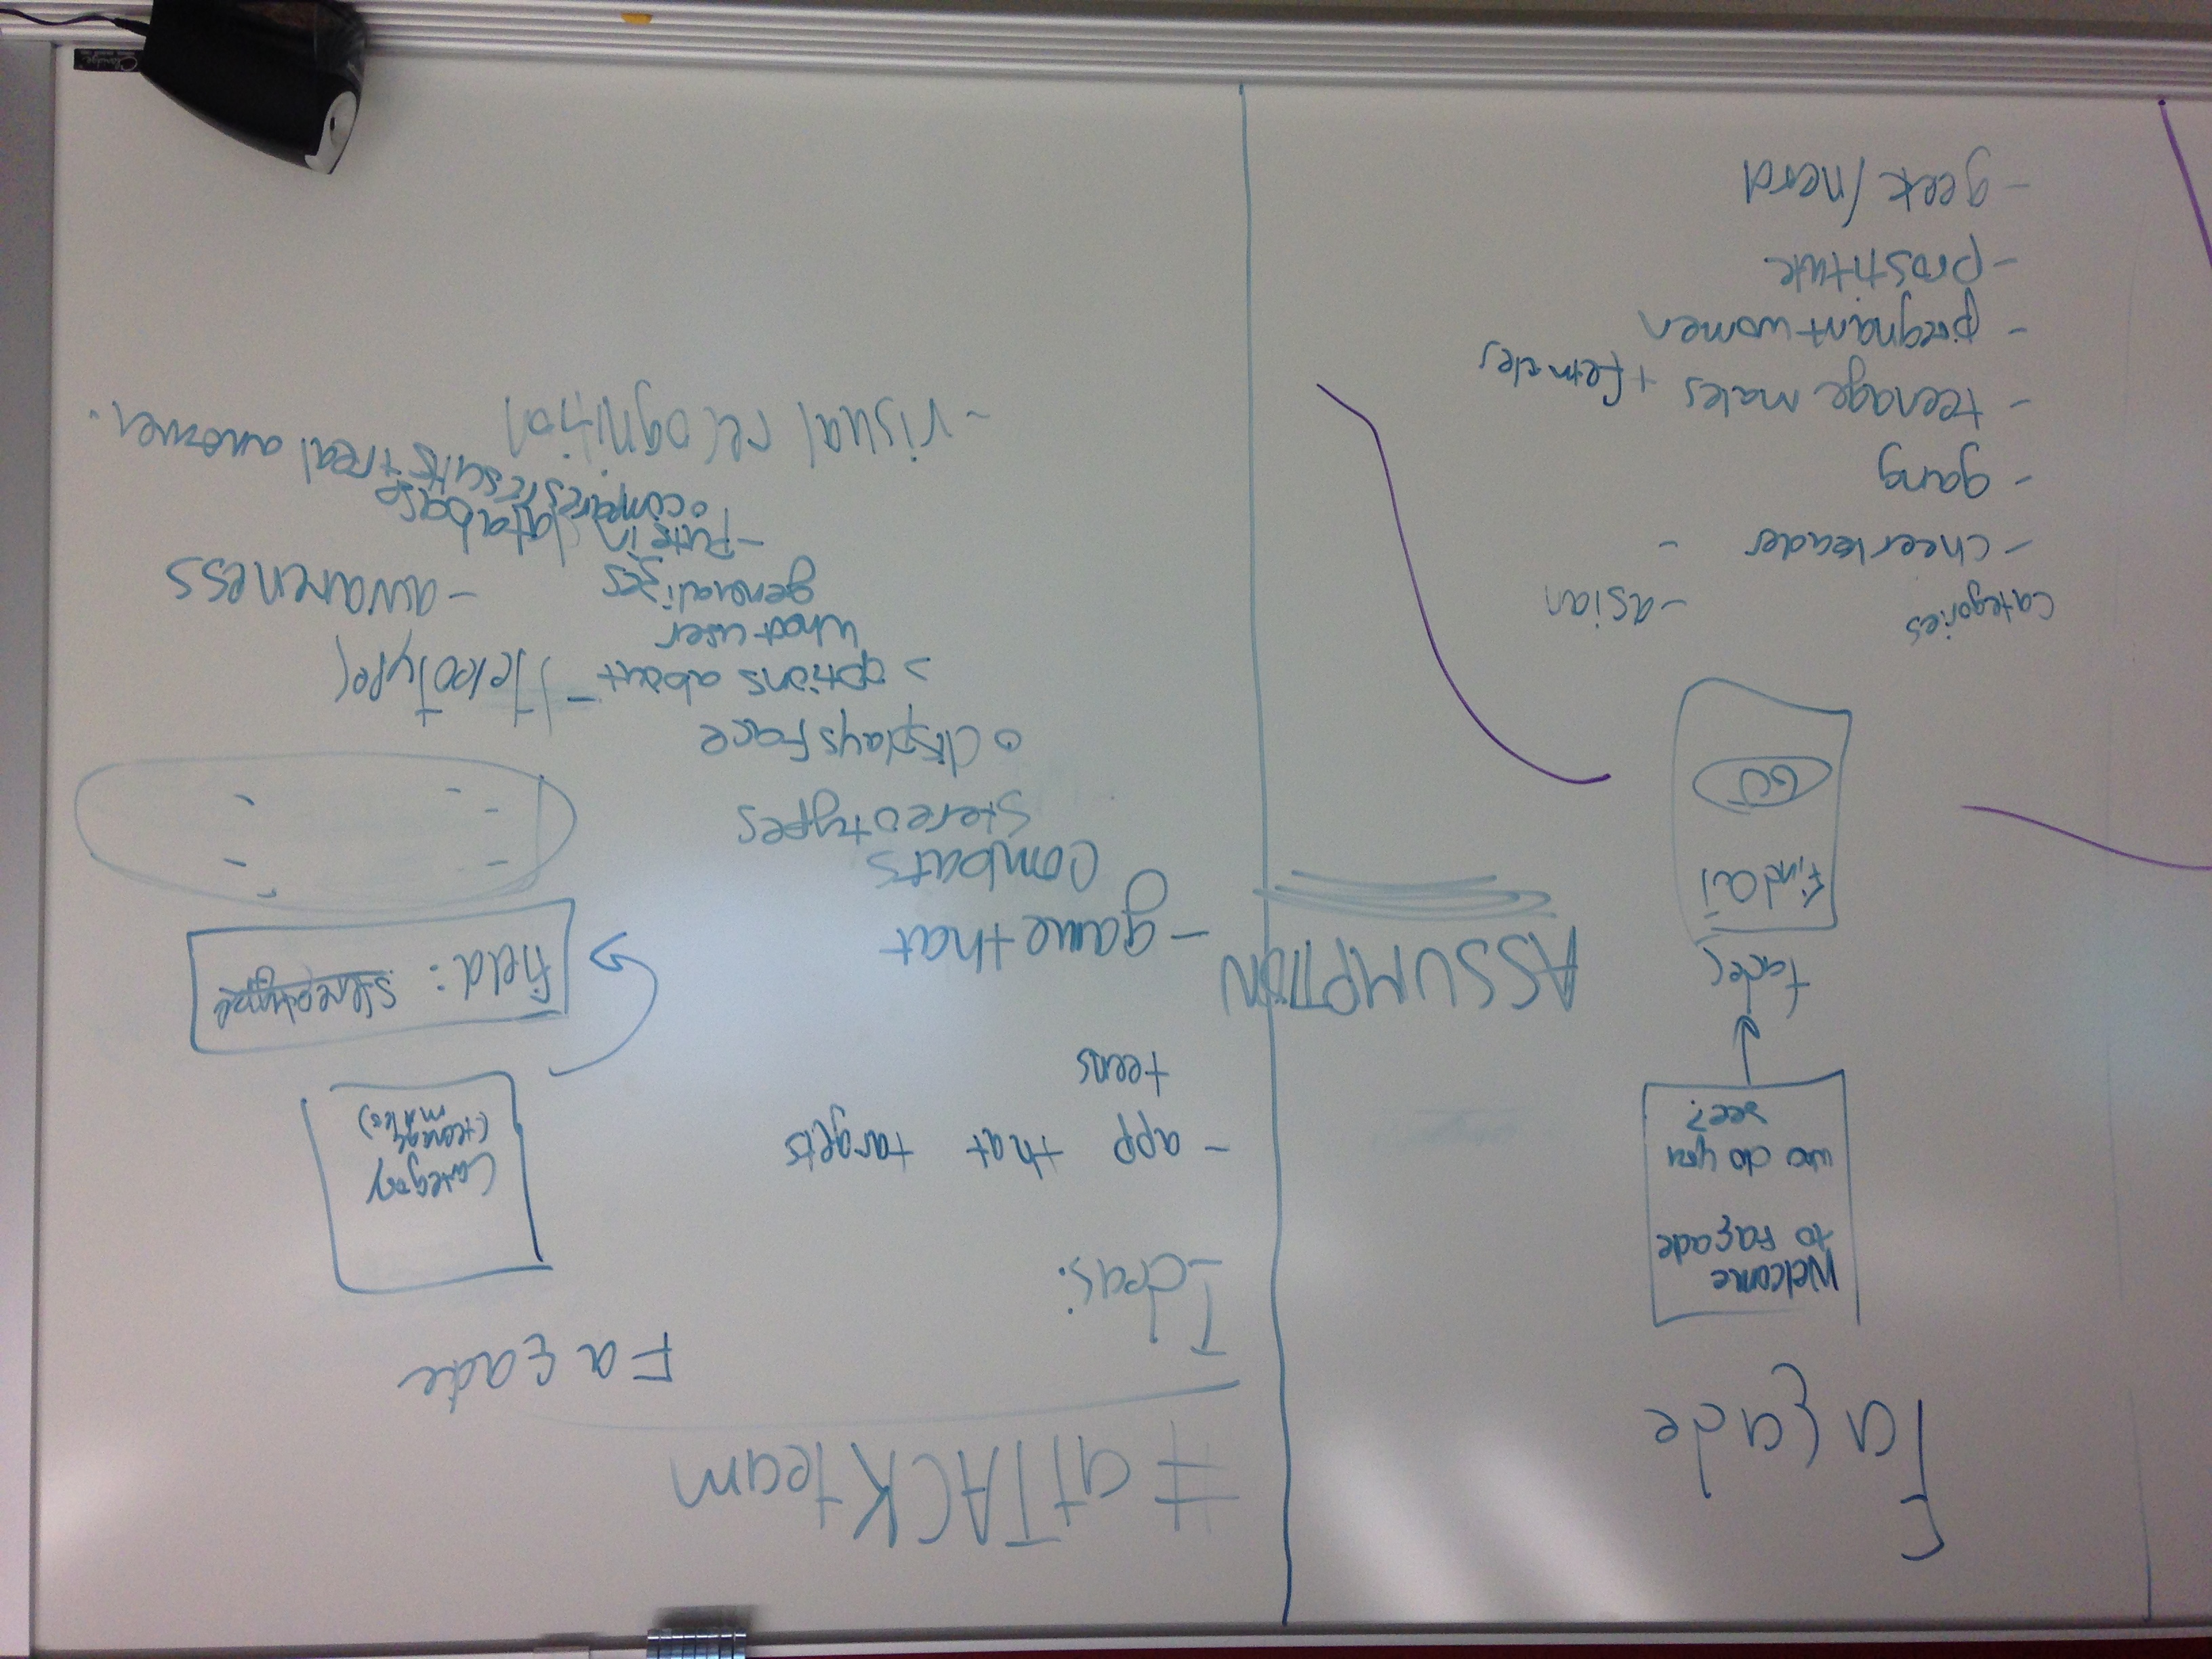 Façade
Welcome
to Façade
wo do you
see?
fades
Find a:
GO
ASSUMPTION
Categories
- cheerleader
- gang
- teenage males + females
- pregnaint women
- prostitute
- geek/nerd
- asian
-
#atTACKteam
Ideas:
- app that targets
teens
- game that
combats
Stereotypes
o displays face
> options about
what user
generalizes
- puts in database
o compares results + real answer.
- visual recognition
Façade
Category
Field: stereotype
- Stereotypes
- awareness